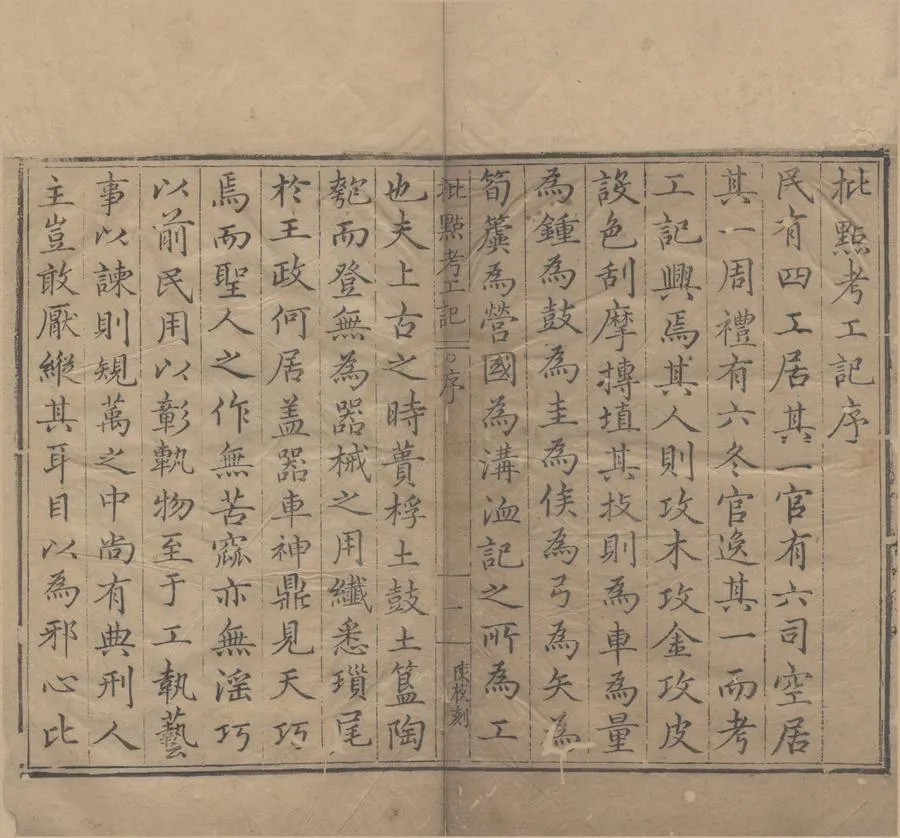 批點考工記序
民有四工居其一官有六司空居
其一周禮有六冬官逸其一而考
工記興焉其人則攻木攻金攻皮
設色刮摩摶埴其技則為車為量
為鍾為鼓為圭為侯為弓為矢為
筍簴為營國為溝洫記之所為工
批點考工記 ○序 一 陳校刻
也夫上古之時蕢桴土鼓土簋陶
匏而登無為器械之用纖悉瑣尾
於王政何居盖器車神鼎見天巧
焉而聖人之作無苦窳亦無淫巧
以前民用以彰軌物至于工執藝
事以諫則規萬之中尚有典刑人
主豈敢厭縱其耳目以為邪心比